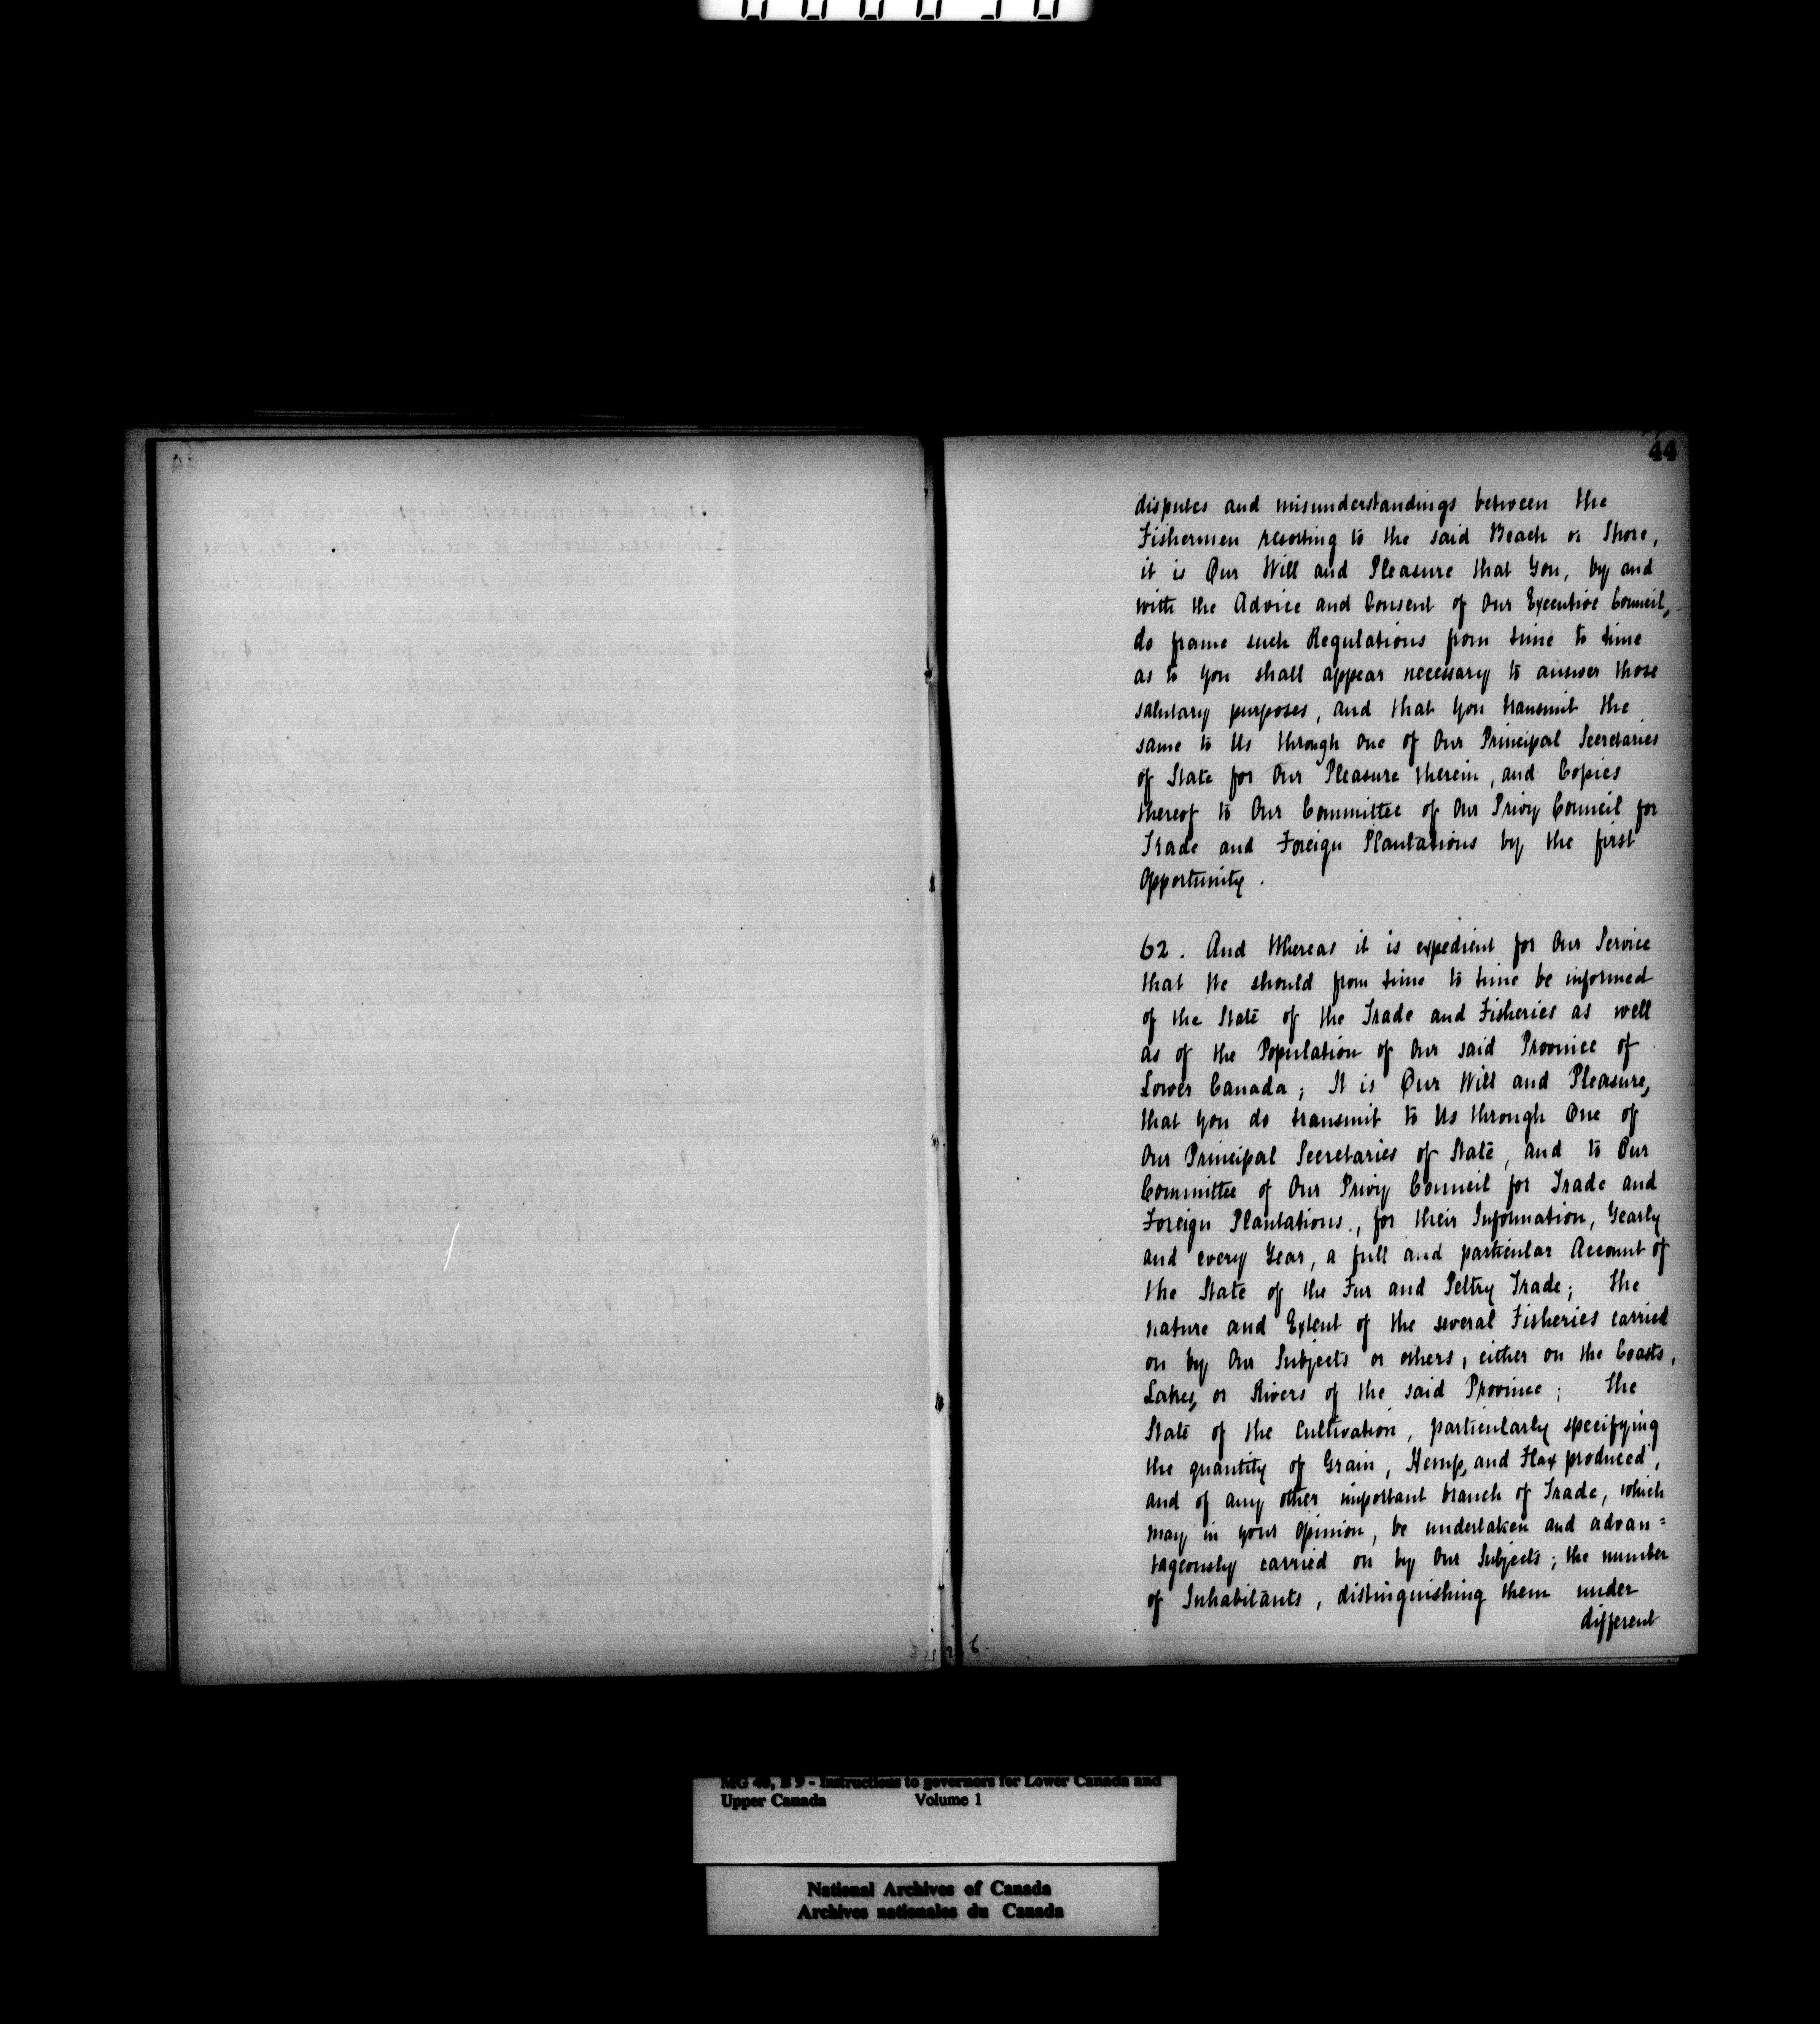 44
disputes and misunderstandings between the
Fishermen resorting to the said Beach or Shore,
it is Our Will and Pleasure that You, by and
with the Advice and Consent of Our Executive Council,
do frame such Regulations from time to time
as to you shall appear necessary to answer those
salutary purposes, and that you transmit the
same to Us through One of Our Principal Secretaries
of State for Our Pleasure therein, and Copies
thereof to Our Committee of Our Privy Council for
Trade and Foreign Plantations by the first
Opportunity.
62. And Whereas it is expedient for Our Service
that We should from time to time be informed
of the State of the Trade and Fisheries as well
as of the Population of Our said Province of
Lower Canada; It is Our Will and Pleasure,
that you do transmit to Us through One of
Our Principal Secretaries of State, and to Our
Committee of Our Privy Council for Trade and
Foreign Plantations, for their Information, Yearly
and every Year, a full and particular Account of
the State of the Fur and Peltry Trade; the
nature and Extent of the several Fisheries carried
on by Our Subjects or others, either on the Coasts,
Lakes, or Rivers of the said Province; the
State of the Cultivation, particularly specifying
the quantity of Grain, Hemp, and Flax produced,
and of any other important branch of Trade, which
may in your Opinion, be undertaken and advan=
tageously carried on by Our Subjects; the number
of Inhabitants, distinguishing them under
different
MG 40, B 9 - Instructions to governors for Lower Canada and
Upper Canada Volume 1
National Archives of Canada
Archives nationales du Canada